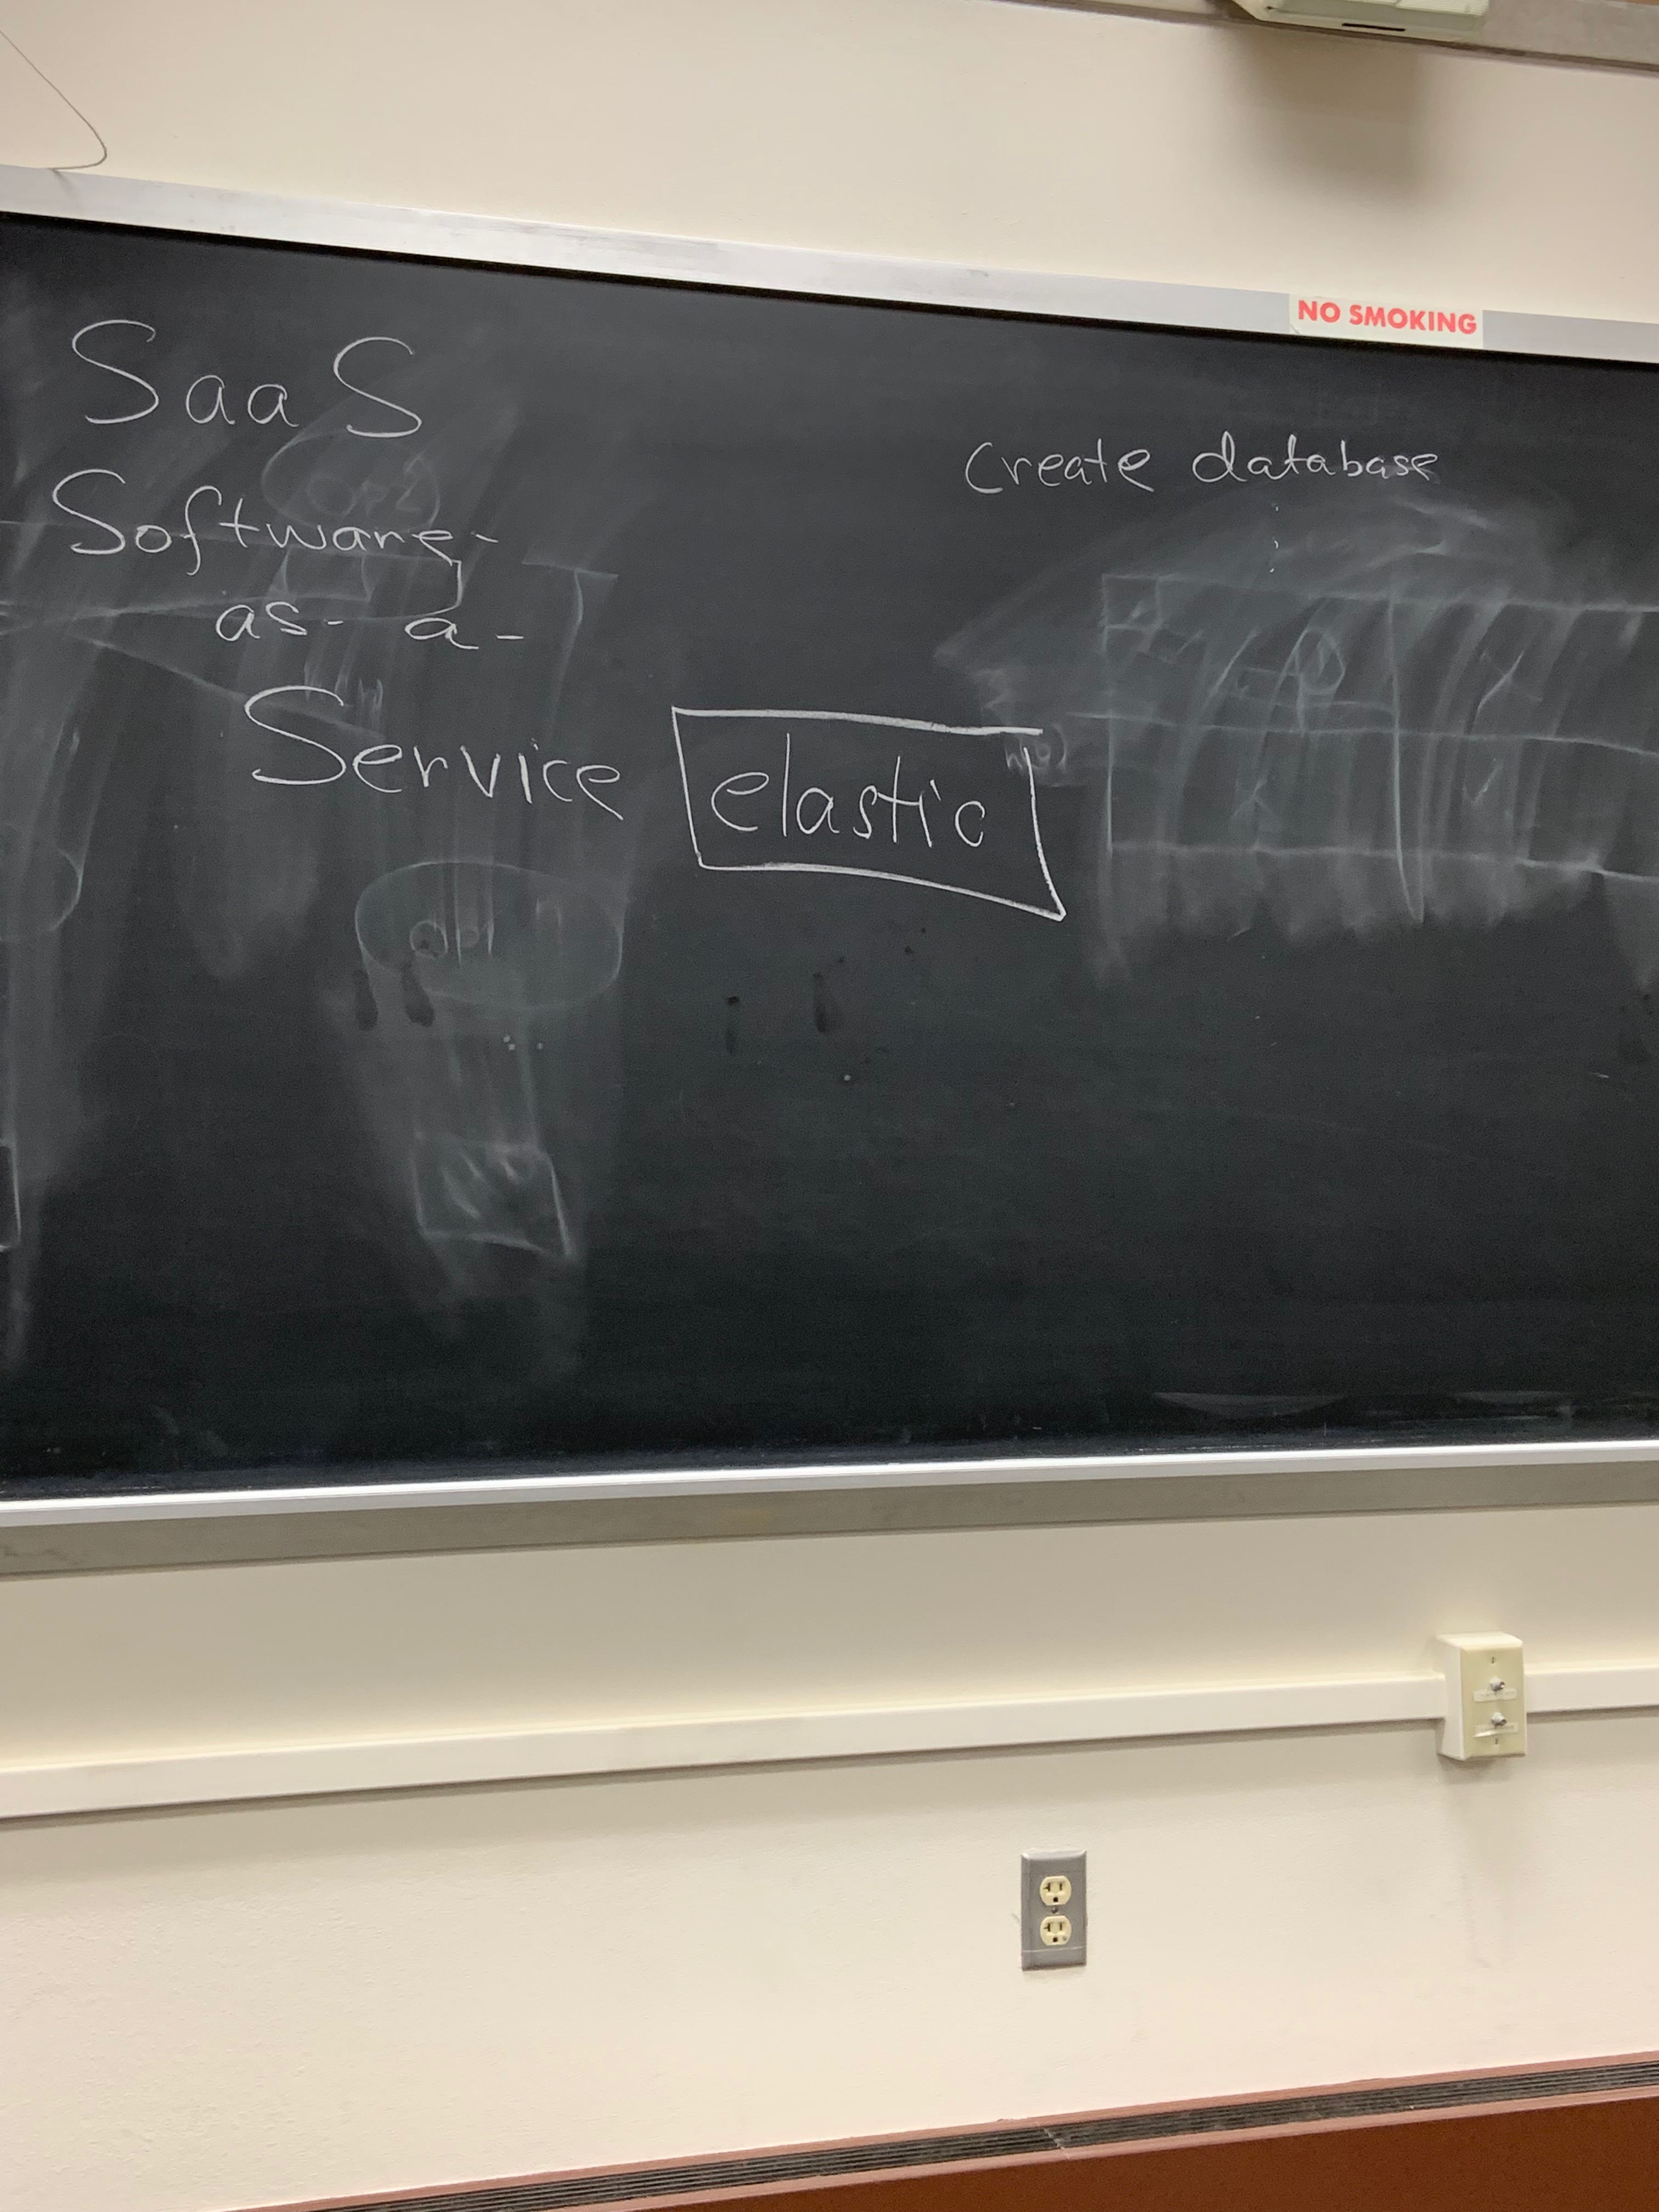 NO SMOKING
SaaS
Software-
as-a-
Service
elastic
create database